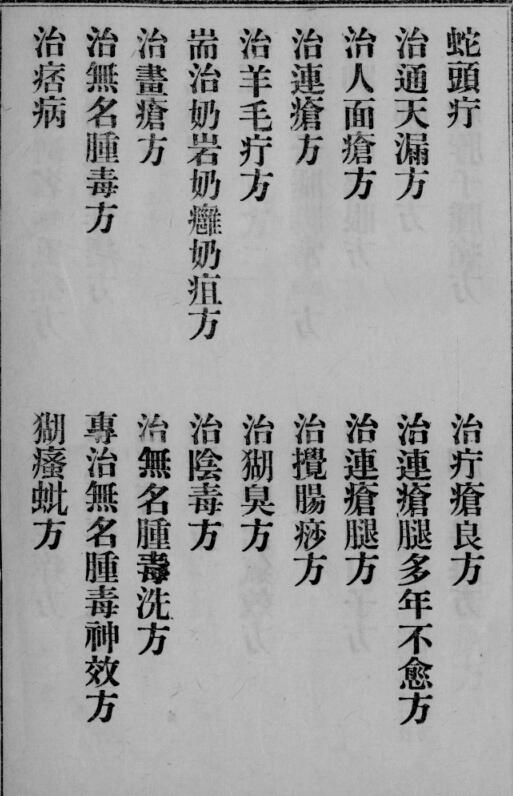 蛇頭疔
治疔瘡良方
治通天漏方
治連瘡腿多年不愈方
治人面瘡方
治連瘡腿方
治連瘡方
治攪腸痧方
治羊毛疔方
治猢臭方
耑治奶岩奶癰奶疽方
治陰毒方
治畫瘡方
治無名腫毒洗方
治無名腫毒方
專治無名腫毒神效方
治痞病
猢瘙蚍方